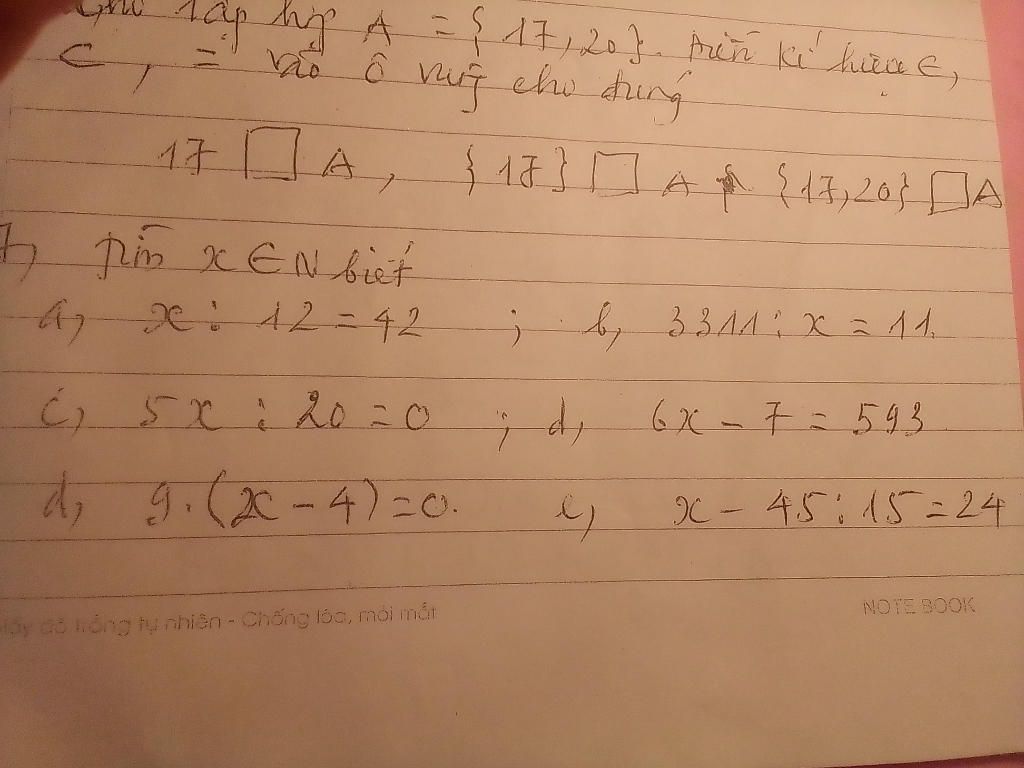 Cho tập hợp A = {17, 20}. Điền kí hiệu ∈,
⊂, = vào ô vuông cho đúng
17 □ A, {17} □ A {17, 20} □ A
7, Tìm x ∈ N biết
a, x : 12 = 42 ; b, 3311 : x = 11.
c, 5x : 20 = 0 ; d, 6x - 7 = 593
d, 9.(x - 4) = 0. e, x - 45 : 15 = 24
trắng tự nhiên - Chống lóa, mỏi mắt
NOTE BOOK